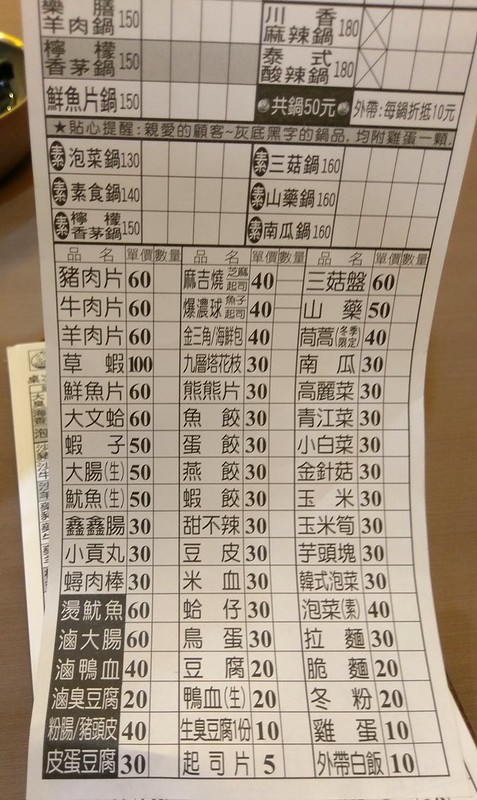 藥膳羊肉鍋150 川香麻辣鍋180
檸檬香茅鍋150 泰式酸辣鍋180
鮮魚片鍋150 共鍋50元 外帶:每鍋折抵10元
★貼心提醒:親愛的顧客~灰底黑字的鍋品,均附雞蛋一顆.
素 泡菜鍋130 素 三菇鍋160
素 素食鍋140 素 山藥鍋160
素 檸檬香茅鍋150 素 南瓜鍋160
品名 單價 數量 品名 單價 數量 品名 單價 數量
豬肉片 60 麻吉燒 芝麻 起司 40 三菇盤 60
牛肉片 60 爆濃球 魚子 起司 40 山藥 50
羊肉片 60 金三角/海鮮包 40 茼蒿(冬季限定) 40
草蝦 100 九層塔花枝 30 南瓜 30
鮮魚片 60 熊熊片 30 高麗菜 30
大文蛤 60 魚餃 30 青江菜 30
蝦子 50 蛋餃 30 小白菜 30
大腸(生) 50 燕餃 30 金針菇 30
魷魚(生) 50 蝦餃 30 玉米 30
鑫鑫腸 30 甜不辣 30 玉米筍 30
小貢丸 30 豆皮 30 芋頭塊 30
蟳肉棒 30 米血 30 韓式泡菜 30
燙魷魚 60 蛤仔 30 泡菜(素) 40
滷大腸 60 鳥蛋 30 拉麵 30
滷鴨血 40 豆腐 20 脆麵 20
滷臭豆腐 20 鴨血(生) 20 冬粉 20
粉腸/豬頭皮 40 生臭豆腐1份 10 雞蛋 10
皮蛋豆腐 30 起司片 5 外帶白飯 10